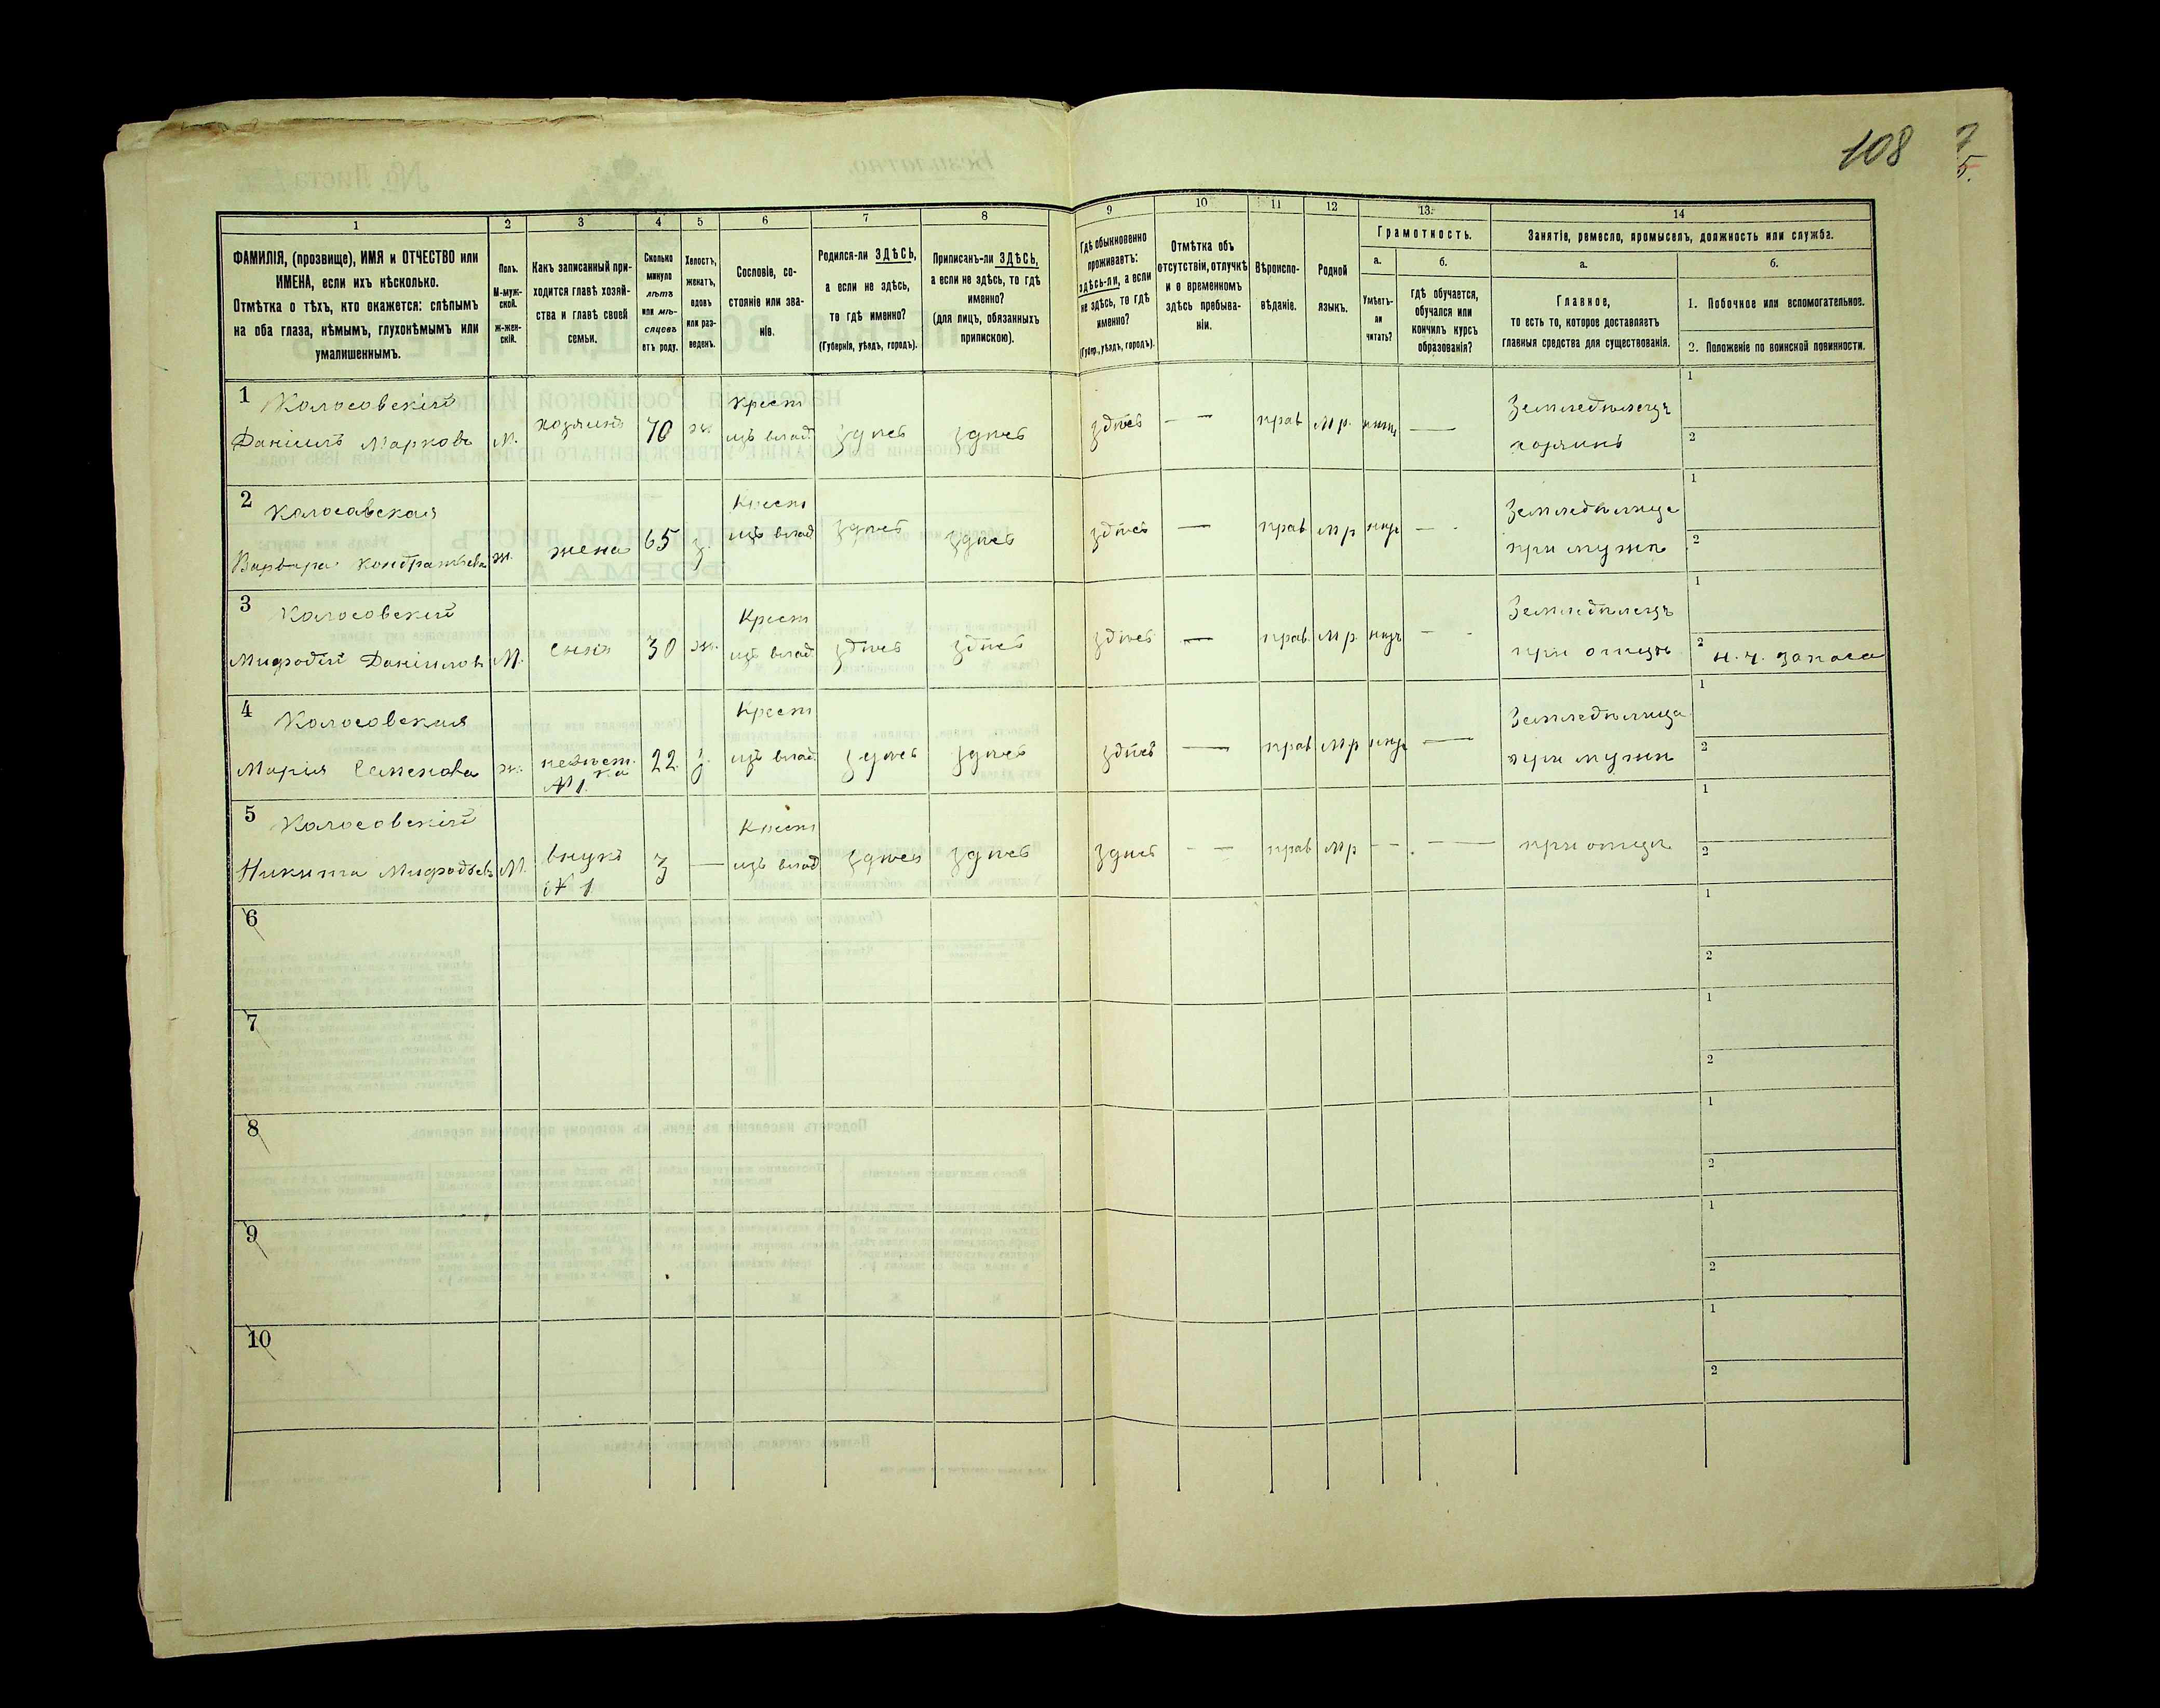 108
7
5.
1
2
3
4
5
6
7
8
9
10
11
12
13.
14
ФАМИЛІЯ, (прозвище), ИМЯ и ОТЧЕСТВО или
ИМЕНА, если ихъ нѣсколько.
Отмѣтка о тѣхъ, кто окажется: слѣпымъ
на оба глаза, нѣмымъ, глухонѣмымъ или
умалишеннымъ.
Полъ.
М-муж-
ской.
ж-жен-
скій.
Какъ записанный при-
ходится главѣ хозяй-
ства и главѣ своей
семьи.
Сколько
минуло
лѣтъ
или мѣ-
сяцевъ
отъ роду.
Холостъ,
женатъ,
вдовъ
или раз-
веденъ.
Сословіе, со-
стояніе или зва-
ніе.
Родился-ли ЗДѢСЬ,
а если не здѣсь,
то гдѣ именно?
(Губернія, уѣздъ, городъ).
Приписанъ-ли ЗДѢСЬ,
а если не здѣсь, то гдѣ
именно?
(для лицъ, обязанныхъ
припискою).
Гдѣ обыкновенно
проживаетъ:
здѣсь-ли, а если
не здѣсь, то гдѣ
именно?
(Губер., уѣздъ, городъ).
Отмѣтка объ
отсутствіи, отлучкѣ
и о временномъ
здѣсь пребыва-
ніи.
Вѣроиспо-
вѣданіе.
Родной
языкъ.
Грамотность.
а.
Умѣетъ-
ли
читать?
б.
Гдѣ обучается,
обучался или
кончилъ курсъ
образованія?
Занятіе, ремесло, промыселъ, должность или служба.
а.
Главное,
то есть то, которое доставляетъ
главныя средства для существованія.
б.
1. Побочное или вспомогательное.
2. Положеніе по воинской повинности.
1 Колосовскій
Даніилъ Марковъ М. хозяинъ 70 ж. Крест изъ влад. здѣсь здѣсь здѣсь — — прав М.р. — Земледѣлецъ хозяинъ
1
2
2 Колосавская
Варвара Кондратьева ж. жена 65 з. Крест изъ влад здѣсь здѣсь здѣсь — прав М р — - Земледѣлица при мужѣ
1
2
3 Колосовскій
Мифодій Даніиловъ М. сынъ 30 ж. Крест изъ влад здѣсь здѣсь здѣсь — прав. М р. — - Земледѣлецъ при отцѣ
1
2 Н. ч. запаса
4 Колосовская
Марія Семенова ж. невѣст.ка № 1. 22. з. Крест изъ влад. здѣсь здѣсь здѣсь — прав М р — Земледѣлица при мужѣ
1
2
5 Колосовскій
Никита Мифодьевъ М. внукъ № 1 3 — Крест изъ влад здѣсь здѣсь здѣсь - - прав М р - - — при отцѣ
1
2
6
1
2
7
1
2
8
1
2
9
1
2
10
1
2